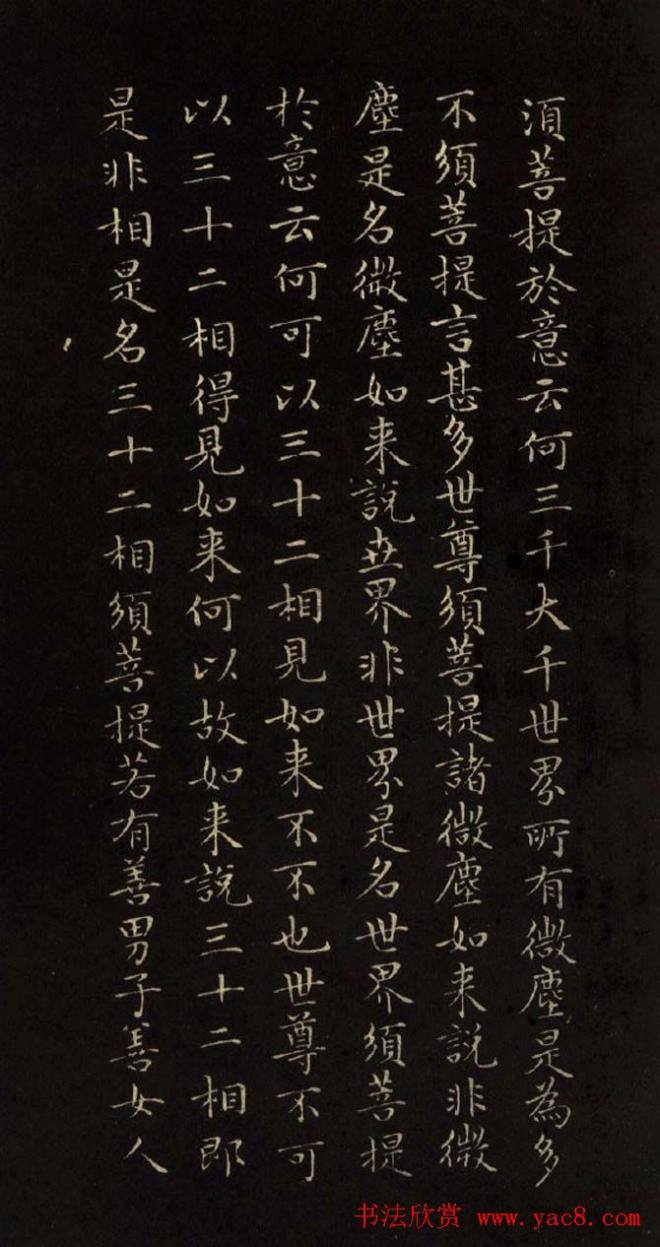 須菩提於意云何三千大千世界所有微塵是為多
不須菩提言甚多世尊須菩提諸微塵如来說非微
塵是名微塵如来說世界非世界是名世界須菩提
於意云何可以三十二相見如来不不也世尊不可
以三十二相得見如来何以故如来說三十二相即
是非相是名三十二相須菩提若有善男子善女人
书法欣赏 www.yac8.com